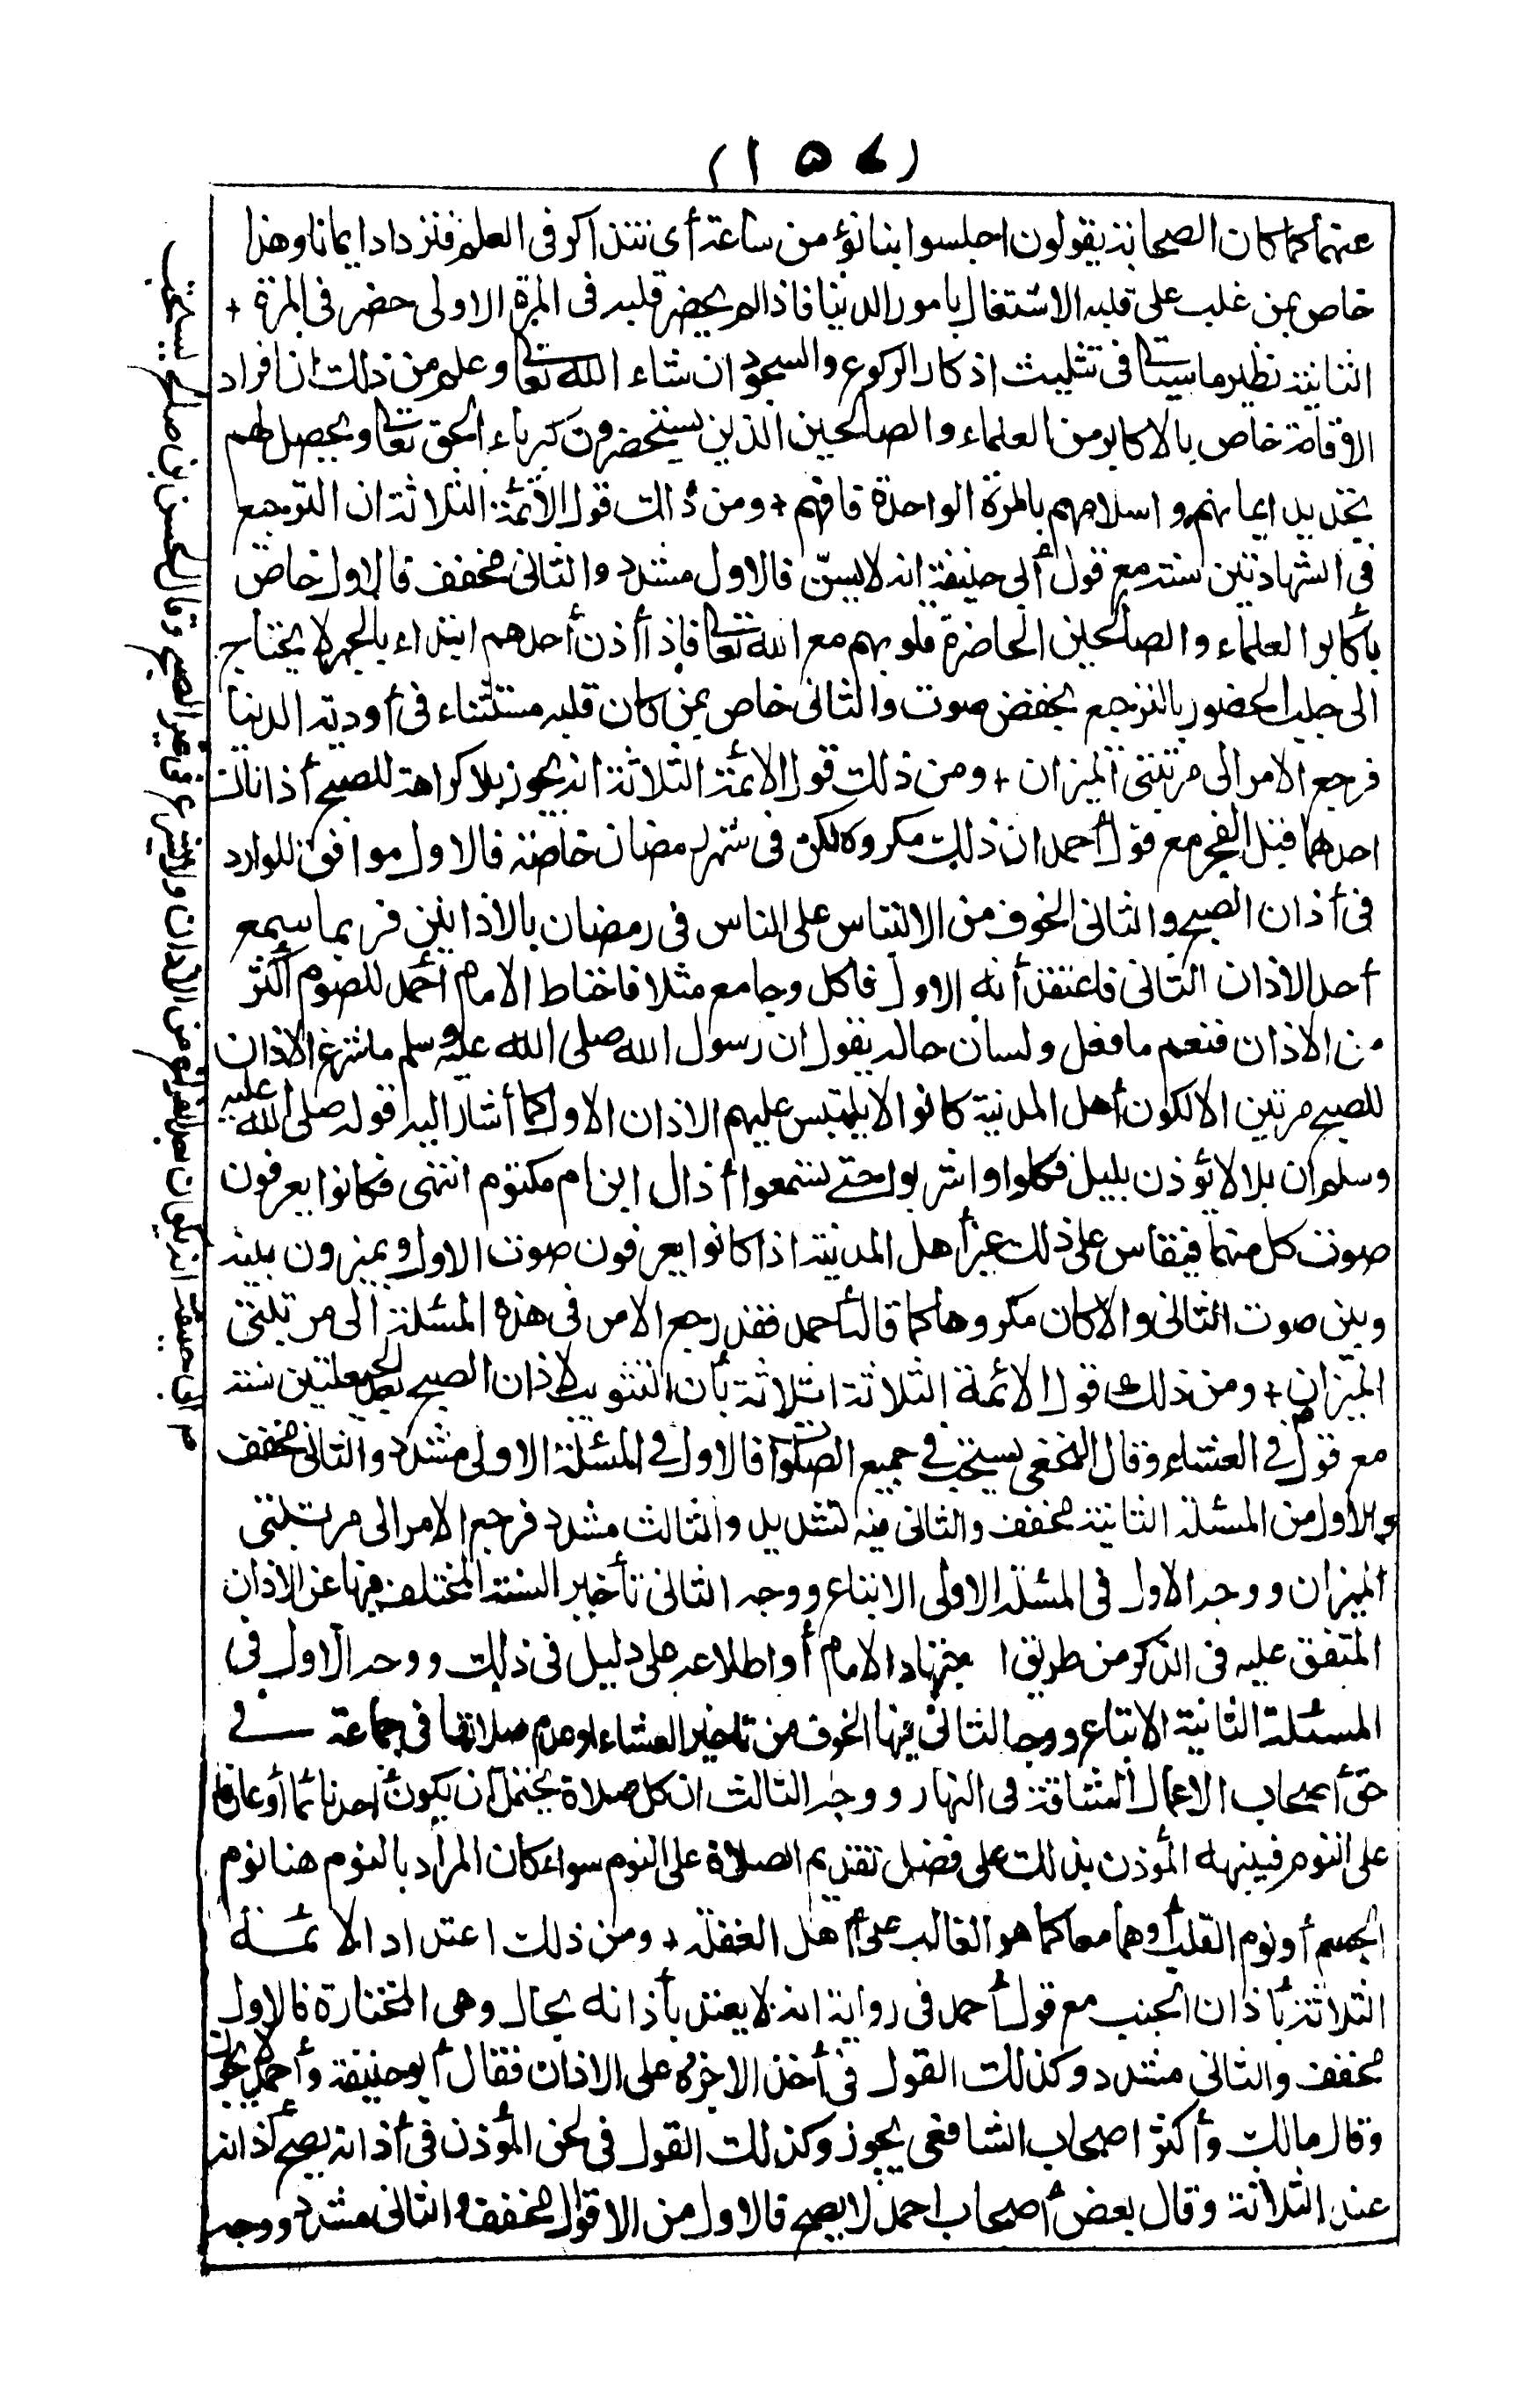 (١٥٤)
عنهما كما كان الصحابة يقولون اجلسوا بنا نؤمن ساعة أى نتذاكر فى العلم فنزداد ايمانا وهذا
خاص بمن غلب على قلبه الاشتغال بامور الدينا فاذا لم يحضر قلبه فى المرة الاولى حضر فى المرة +
الثانية نظير ما سيأتى فى تثليث اذكار الركوع والسجود ان شاء الله تعالى وعلم من ذلك ان افراد
الاقامة خاص بالاكابر من العلماء والصالحين الذين يستحضرون كبرياء الحق تعالى ويحصل لهم
تجديد ايمانهم واسلامهم بالمرة الواحدة فافهم + ومن ذالك قول الأئمة الثلاثة ان الترجيع
فى الشهادتين سنة مع قول أبى حنيفة انه لا يسنّ فالاول مشدد والثانى مخفف فالاول خاص
بأكابر العلماء والصالحين الحاضرة قلوبهم مع الله تعالى فاذا أذن أحدهم ابتداء بالجهر لا يحتاج
الى جلب الحضور بالترجيع بخفض صوت والثانى خاص بمن كان قلبه مشتتاء فى أودية الدينا
فرجع الامر الى مرتبتى الميزان + ومن ذلك قول الائمة الثلاثة انه يجوز بلا كراهة للصبح أذانان
احدهما قبل الفجر مع قول أحمد ان ذلك مكروه لكن فى شهر رمضان خاصة فالاول موافق للوارد
فى أذان الصبح والثانى الخوف من الالتباس على الناس فى رمضان بالاذانين فربما سمع
أحد الاذان الثانى فاعتقد أنه الاول فاكل وجامع مثلا فاحتاط الامام أحمد للصوم أكثر
من الاذان فنعم ما فعل ولسان حاله يقول ان رسول الله صلى الله عليه وسلم ما شرع الاذان
للصبح مرتين الا لكون أهل المدنية كانوا لا يلتبس عليهم الاذان الاول كما أشار اليه قوله صلى الله عليه
وسلم ان بلالا يؤذن بليل فكلوا واشربوا حتى تسمعوا أذان ابن ام مكتوم انتهى فكانوا يعرفون
صوت كل منهما فيقاس على ذلك غير أهل المدنية اذا كانوا يعرفون صوت الاول ويميزون بينه
وبين صوت الثانى والا كان مكروها كما قال أحمد فقد رجع الامر فى هذه المسئلة الى مرتبتى
الميزان + ومن ذلك قول الائمة الثلاثة الثلاثة بأن التثويب لاذان الصبح بعد الحيعلتين سنة
مع قول فى العشاء وقال النخعى يستحب فى جميع الصلوات فالاول فى المسئلة الاولى مشدد والثانى مخفف
والاول من المسئلة الثانية مخفف والثانى فيه تشديد والثالث مشدد فرجع الامر الى مرتبتى
الميزان ووجه الاول فى المسئلة الاولى الاتباع ووجه الثانى تأخير السنة المختلف فيها عن الاذان
المتفق عليه فى الذكر من طريق اجتهاد الامام أو اطلاعه على دليل فى ذلك ووجه الاول فى
المسئلة الثانية الاتباع ووجه الثانى فيها الخوف من تاخير العشاء او عدم صلاتها فى جماعة فى
حق أصحاب الاعمال الشاقة فى النهار ووجه الثالث ان كل صلاة يحتمل أن يكون أحد نائما أو عازما
على النوم فينبهه المؤذن بذلك على فضل تقديم الصلاة على النوم سواء كان المراد بالنوم هنا نوم
الجسم أو نوم القلب أو هما معا كما هو الغالب على أهل الغفلة + ومن ذلك اعتداد الائمة
الثلاثة بأذان الجنب مع قول أحمد فى رواية انه لا يعتد بأذانه بحال وهى المختارة فالاول
مخفف والثانى مشدد وكذلك القول فى أخذ الاجرة على الاذان فقال أبو حنيفة وأحمد لا يجوز
وقال مالك وأكثر اصحاب الشافعى يجوز وكذلك القول فى لحن المؤذن فى أذانه يصح أذانه
عند الثلاثة وقال بعض أصحاب احمد لا يصح فالاول من الاقوال مخفف والثانى مشدد ووجه